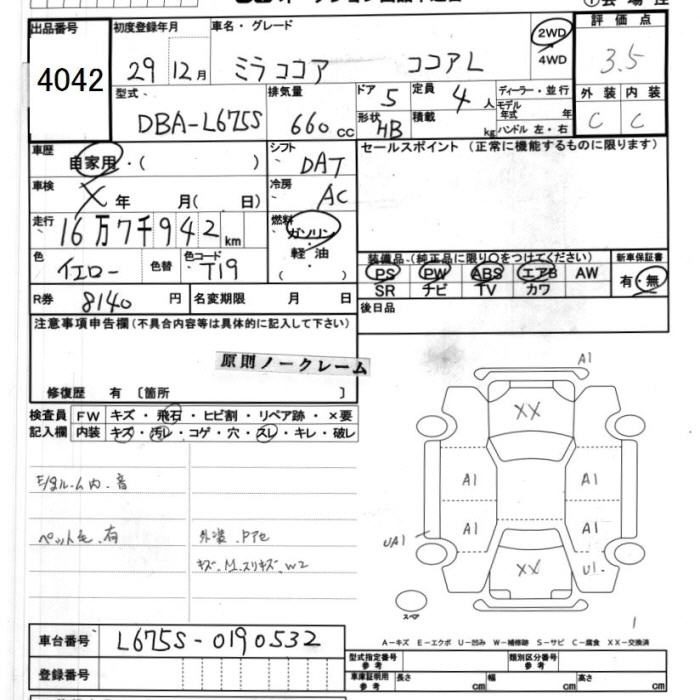 出品番号 初度登録年月 車名・グレード 評価点
4042 29年 12月 ミラココア ココアL 2WD 4WD 3.5
外装 内装
C C
型式 排気量 ドア 定員 ディーラー・並行
DBA-L675S 660cc 5 4人 モデル年式 年
形状 HB 積載 kg ハンドル 左・右
車歴 自家用・( ) シフト DAT セールスポイント (正常に機能するものに限ります)
車検 X年 月( 日) 冷房 AC
走行 16万7千942km 燃料 ガソリン・軽油・( )
色 イエロー 色替 色コード T19
装備品(純正品に限り○をつけてください) 新車保証書
PS PW ABS エアB AW 有・無
SR ナビ TV カワ
R券 8140円 名変期限 月 日 後日品
注意事項申告欄(不具合内容等は具体的に記入して下さい)
原則ノークレーム
修復歴 有 〔箇所 〕
検査員 FW キズ・飛石・ヒビ割・リペア跡・×要
記入欄 内装 キズ・汚レ・コゲ・穴・スレ・キレ・破レ
E/gルーム内.音
ペット毛.有 外装.Pアセ
キズ.M.スリキズ.W2
A1
XX
A1 A1
A1 A1
UA1
XX U1
スペア
1
A-キズ E-エクボ U-凹み W-補修跡 S-サビ C-腐食 XX-交換済
車台番号 L675S-0190532
登録番号
型式指定番号 参考 類別区分番号 参考
車庫証明用 参考 長さ cm 幅 cm 高さ cm